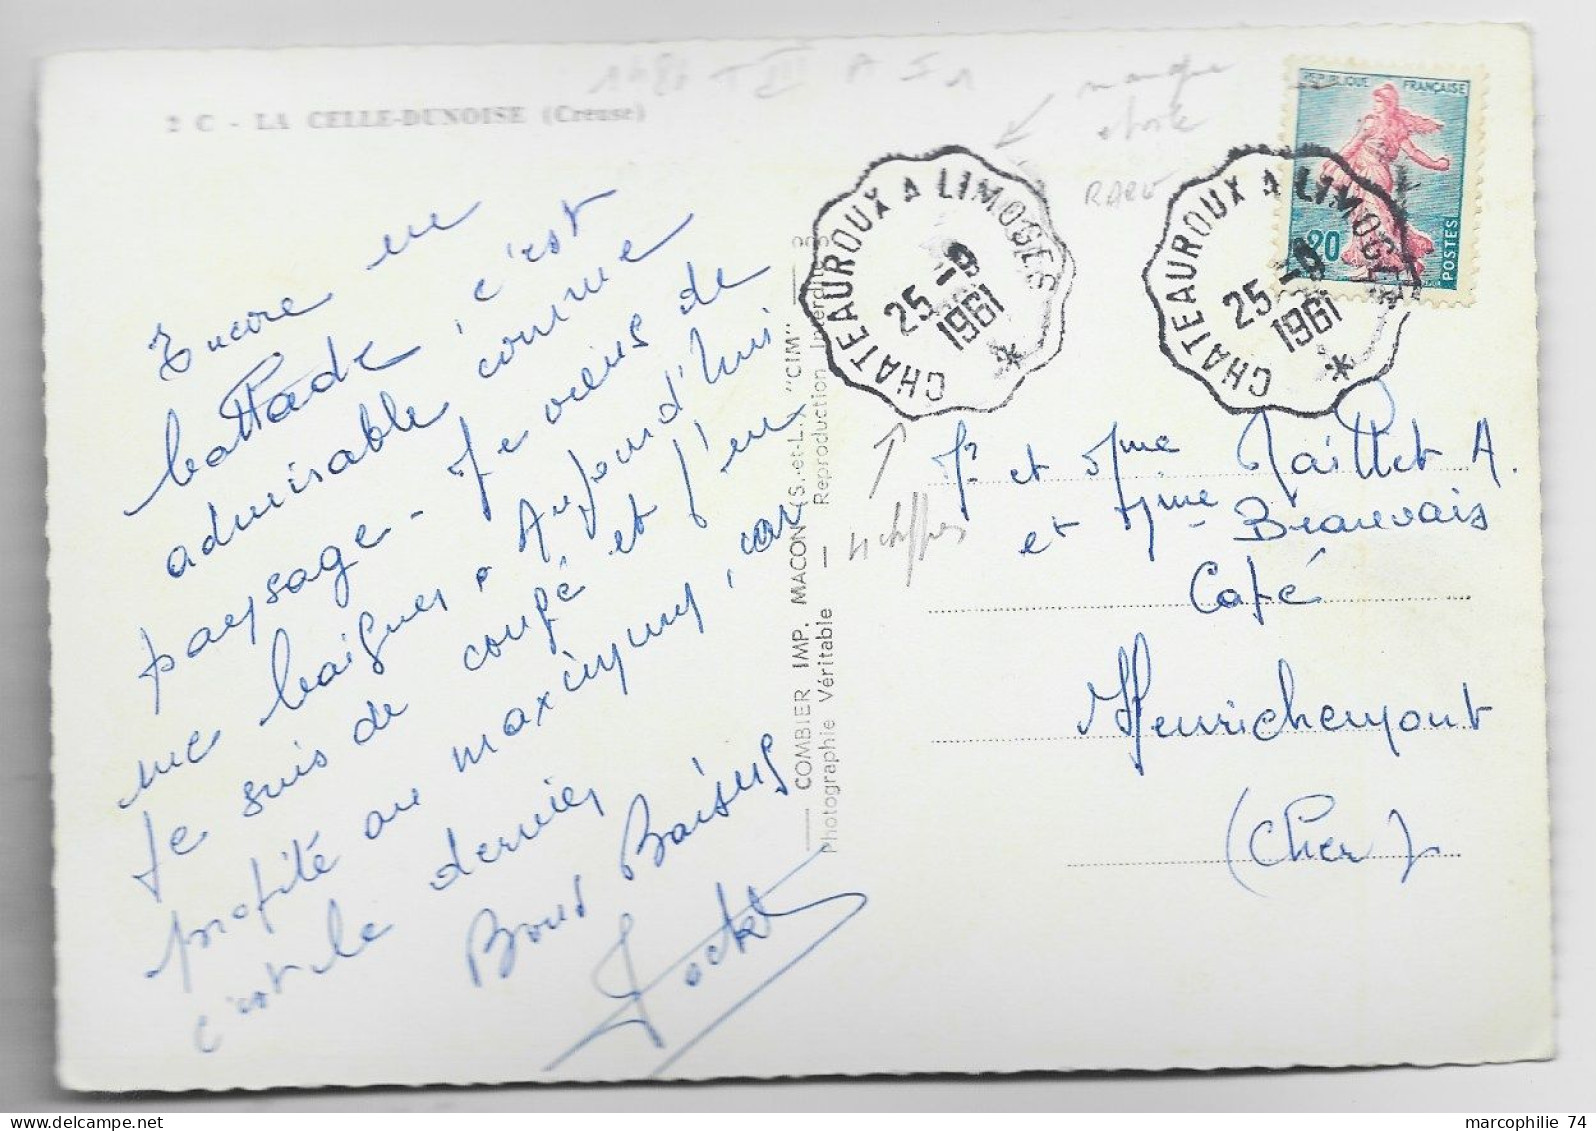 2 C - LA CELLE-DUNOISE (Creuse)
Encore une
c'est
admirable comme
paysage - Je viens de
me baigner. Aujourd'hui
Je suis de congé et j'en
profité au maximum, car
c'est le dernier
Bons Baisers
COMBIER IMP. MACON (S.-et-L.) "CIM"
Photographie Véritable — Reproduction Interdite
manque
étoile
RARE
4 chiffres
CHATEAUROUX A LIMOGES
25-9
1961
*
CHATEAUROUX A LIMOGES
25-9
1961
*
REPUBLIQUE FRANÇAISE
0,20
POSTES
Mr et Mme Taillet A.
et Mme Beauvais
Café
Henrichemont
(Cher)
marcophilie 74